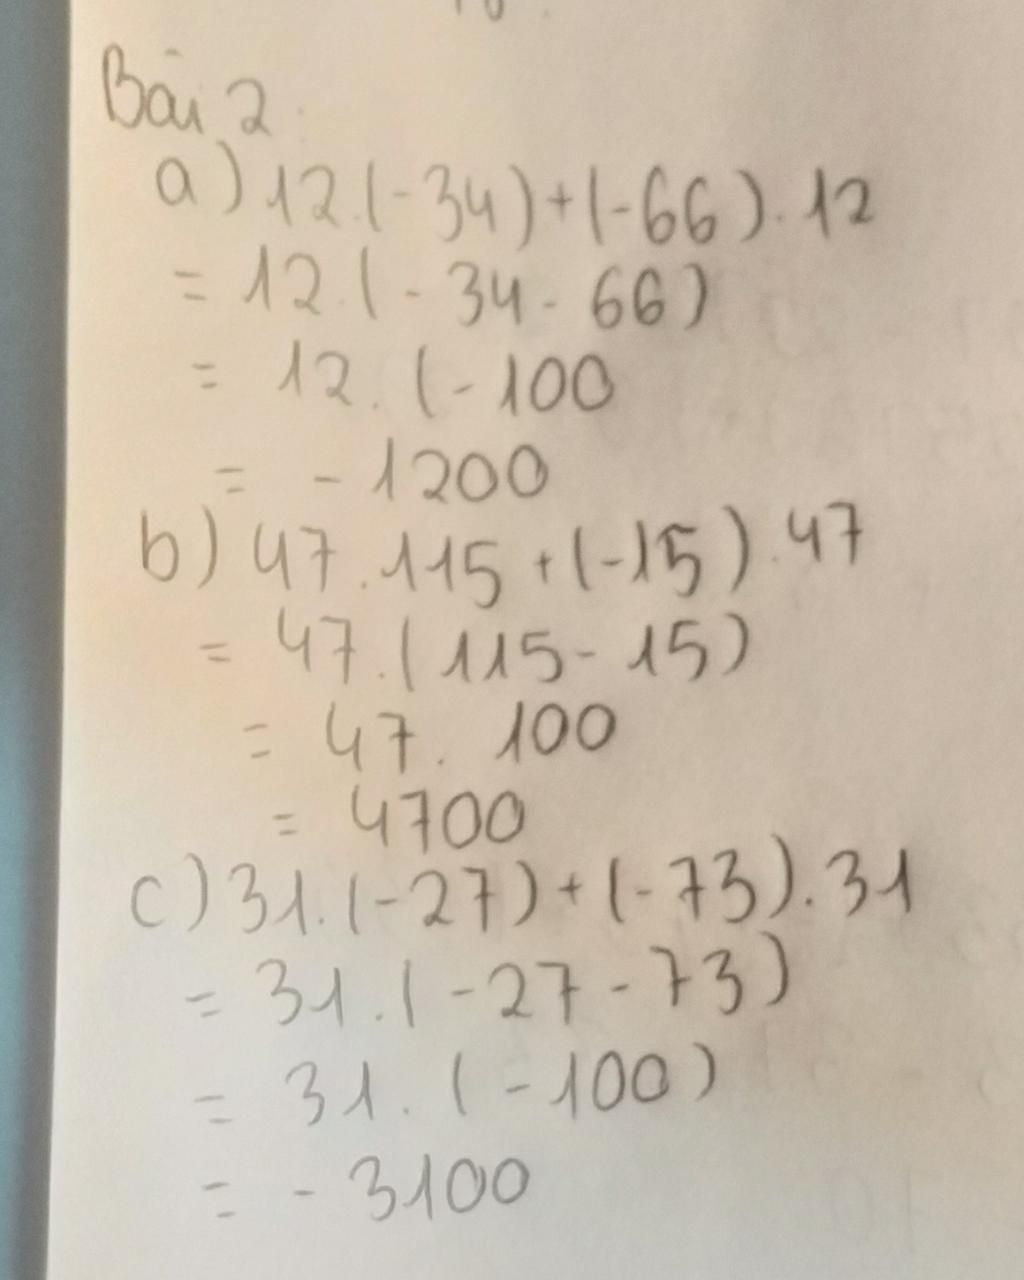 Bài 2:
a) 12.(-34)+(-66).12
= 12.(-34-66)
= 12.(-100
= -1200
b) 47.115+(-15).47
= 47.(115-15)
= 47.100
= 4700
c) 31.(-27)+(-73).31
= 31.(-27-73)
= 31.(-100)
= -3100